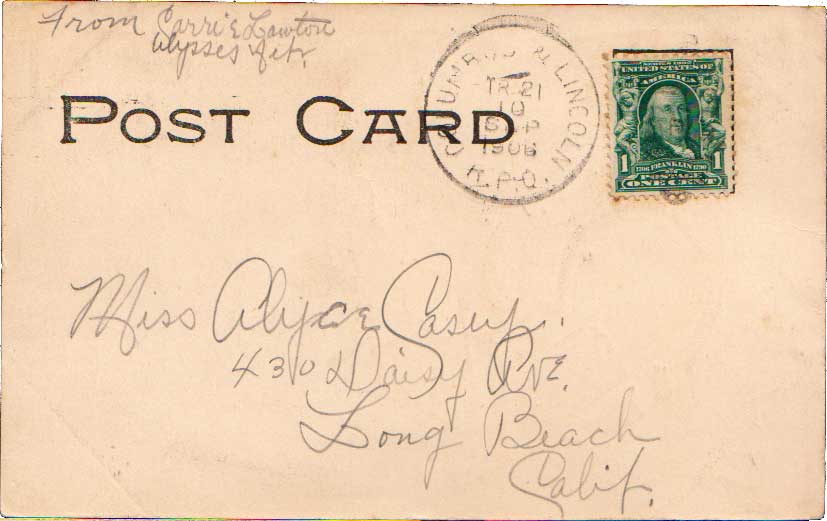 From Carrie Lawton
Ulysses Neb.
POST CARD
COLUMBUS & LINCOLN
TR. 21
10
SEP
1906
R.P.O.
SERIES 1902
UNITED STATES OF
AMERICA
1 1706 FRANKLIN 1790 1
POSTAGE
ONE CENT
Miss Alyce Casey.
430 Daisy Ave.
Long Beach
Calif.